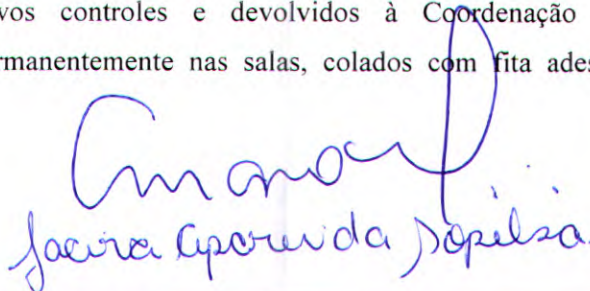 vos controles e devolvidos à Coordenação
rmanentemente nas salas, colados com fita ades
Jacira Aparecida